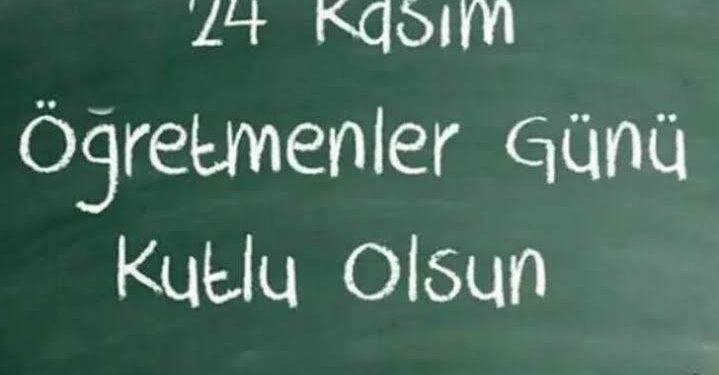 24 Kasım
Öğretmenler Günü
Kutlu Olsun